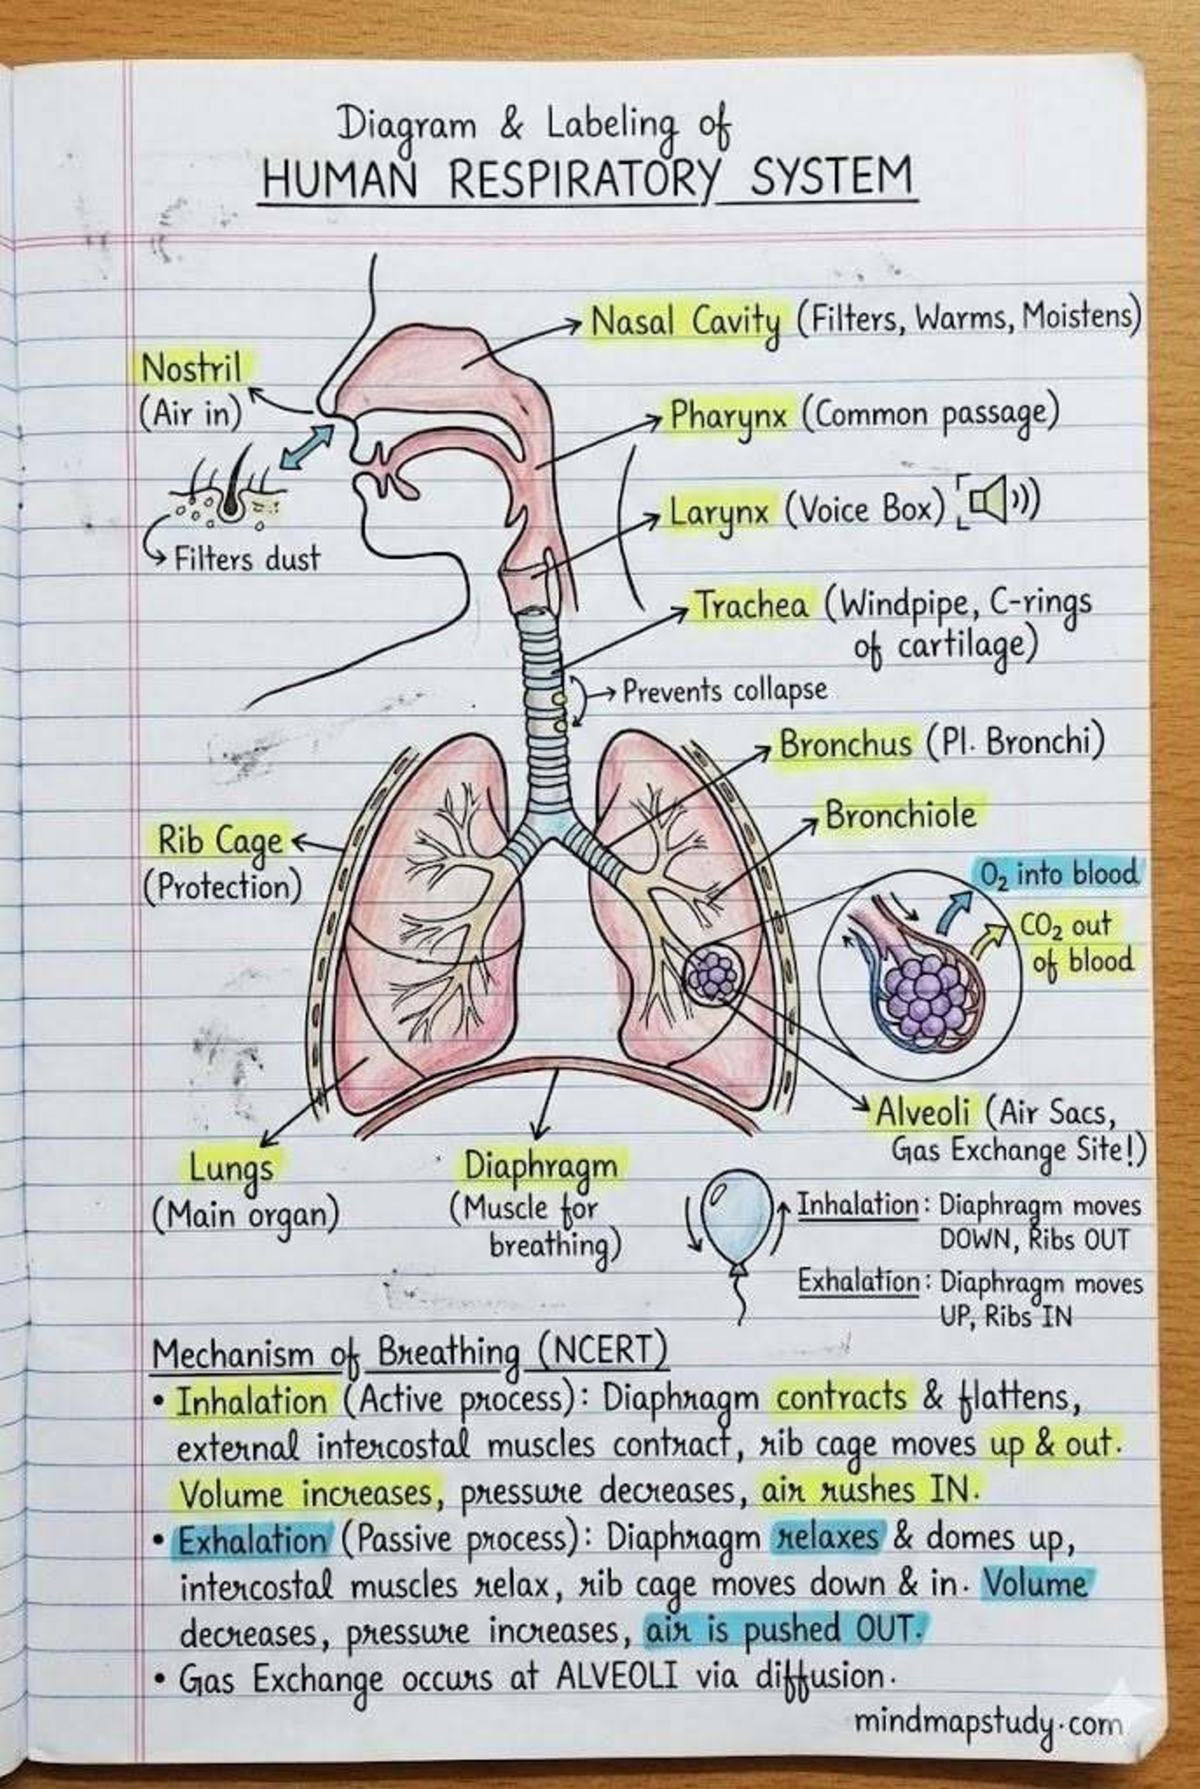 Diagram & Labeling of
HUMAN RESPIRATORY SYSTEM
Nasal Cavity (Filters, Warms, Moistens)
Nostril
(Air in)
Pharynx (Common passage)
Larynx (Voice Box)
Filters dust
Trachea (Windpipe, C-rings
of cartilage)
Prevents collapse
Bronchus (Pl. Bronchi)
Bronchiole
Rib Cage
(Protection)
O₂ into blood
CO₂ out
of blood
Alveoli (Air Sacs,
Gas Exchange Site!)
Lungs
(Main organ)
Diaphragm
(Muscle for
breathing)
Inhalation: Diaphragm moves
DOWN, Ribs OUT
Exhalation: Diaphragm moves
UP, Ribs IN
Mechanism of Breathing (NCERT)
• Inhalation (Active process): Diaphragm contracts & flattens,
external intercostal muscles contract, rib cage moves up & out.
Volume increases, pressure decreases, air rushes IN.
• Exhalation (Passive process): Diaphragm relaxes & domes up,
intercostal muscles relax, rib cage moves down & in. Volume
decreases, pressure increases, air is pushed OUT.
• Gas Exchange occurs at ALVEOLI via diffusion.
mindmapstudy.com